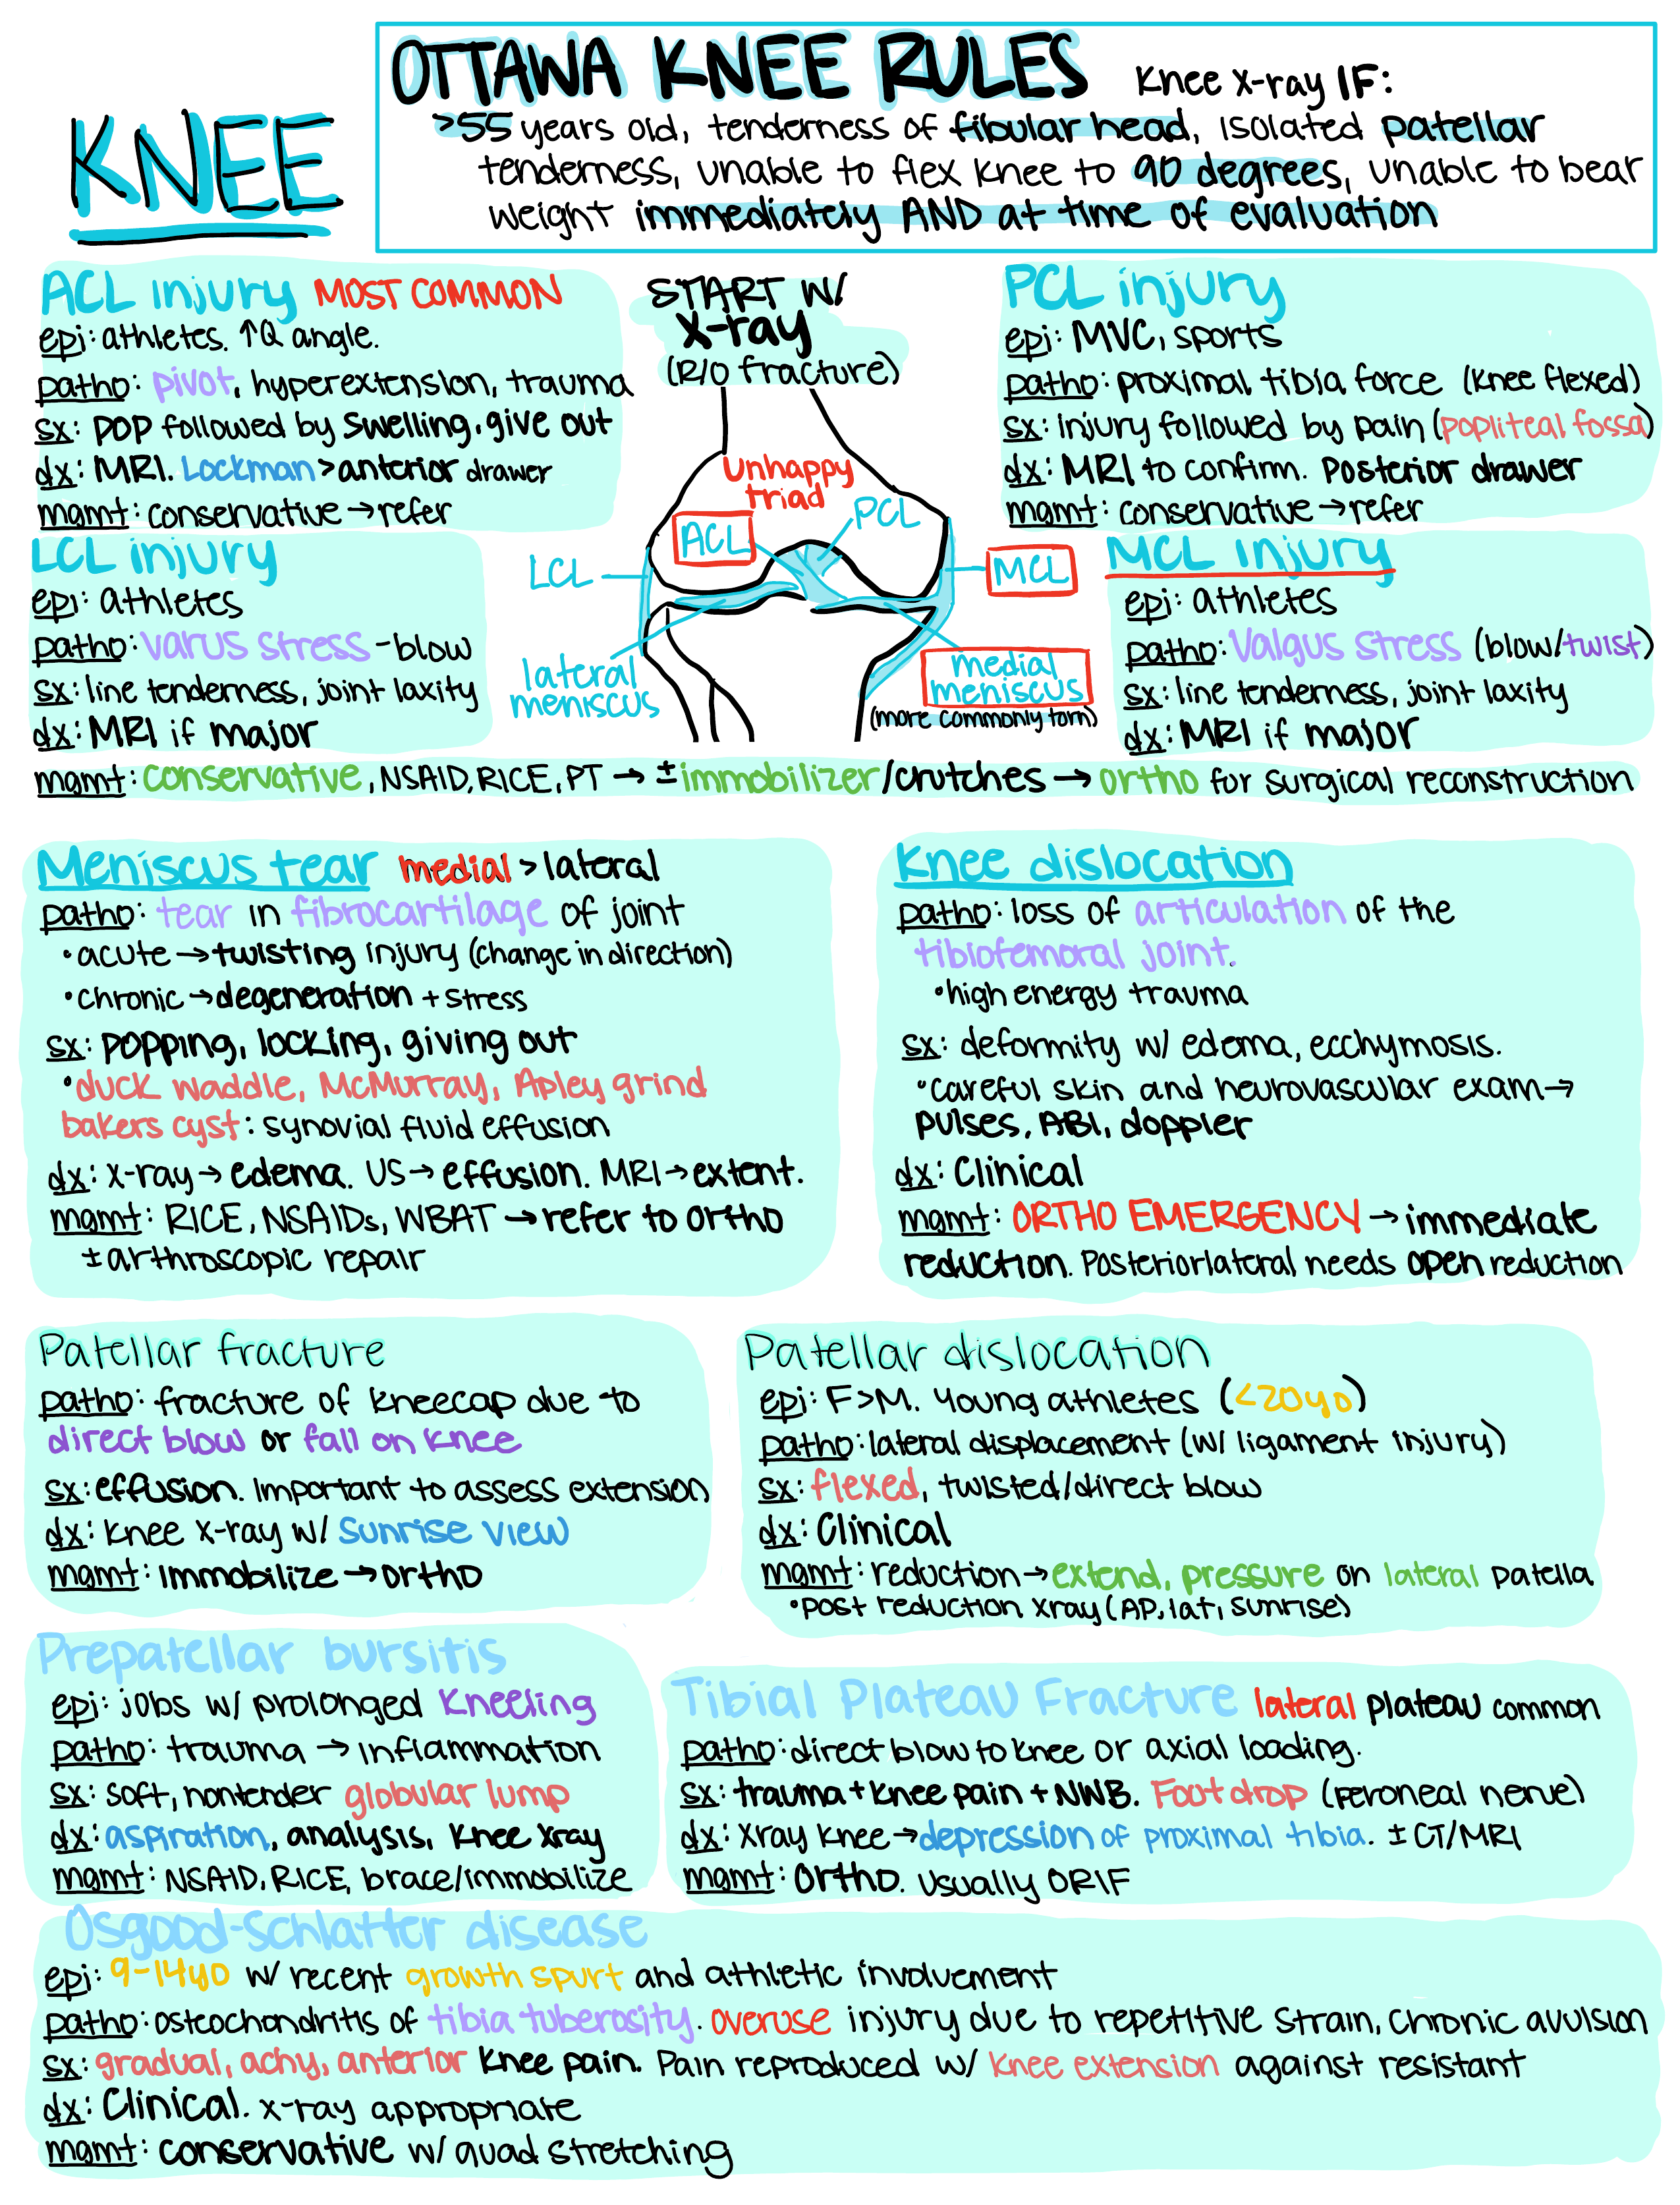 KNEE
OTTAWA KNEE RULES Knee x-ray IF:
>55 years old, tenderness of fibular head, isolated patellar
tenderness, unable to flex knee to 90 degrees, unable to bear
weight immediately AND at time of evaluation
ACL injury MOST COMMON
epi: athletes. ↑Q angle.
patho: pivot, hyperextension, trauma
sx: pop followed by swelling, give out
dx: MRI. Lockman > anterior drawer
mgmt: conservative → refer
START W/
X-ray
(R/O fracture)
PCL injury
epi: MVC, sports
patho: proximal tibia force (knee flexed)
sx: injury followed by pain (popliteal fossa)
dx: MRI to confirm. Posterior drawer
mgmt: conservative → refer
Unhappy
triad
ACL
PCL
LCL
MCL
lateral
meniscus
medial
meniscus
(more commonly torn)
LCL injury
epi: athletes
patho: varus stress - blow
sx: line tenderness, joint laxity
dx: MRI if major
MCL injury
epi: athletes
patho: Valgus stress (blow/twist)
sx: line tenderness, joint laxity
dx: MRI if major
mgmt: conservative, NSAID, RICE, PT → ± immobilizer/crutches → ortho for surgical reconstruction
Meniscus tear medial > lateral
patho: tear in fibrocartilage of joint
• acute → twisting injury (change in direction)
• chronic → degeneration + stress
sx: popping, locking, giving out
• duck waddle, McMurray, Apley grind
bakers cyst: synovial fluid effusion
dx: x-ray → edema. US → effusion. MRI → extent.
mgmt: RICE, NSAIDs, WBAT → refer to ortho
± arthroscopic repair
Knee dislocation
patho: loss of articulation of the
tibiofemoral joint.
• high energy trauma
sx: deformity w/ edema, ecchymosis.
• careful skin and neurovascular exam →
pulses, ABI, doppler
dx: Clinical
mgmt: ORTHO EMERGENCY → immediate
reduction. Posteriorlateral needs open reduction
Patellar fracture
patho: fracture of kneecap due to
direct blow or fall on knee
sx: effusion. Important to assess extension
dx: knee x-ray w/ sunrise view
mgmt: Immobilize → ortho
Patellar dislocation
epi: F>M. Young athletes (<20yo)
patho: lateral displacement (w/ ligament injury)
sx: flexed, twisted/direct blow
dx: Clinical
mgmt: reduction → extend, pressure on lateral patella
• Post reduction xray (AP, lat, sunrise)
Prepatellar bursitis
epi: jobs w/ prolonged kneeling
patho: trauma → inflammation
sx: soft, nontender globular lump
dx: aspiration, analysis, knee xray
mgmt: NSAID, RICE, brace/immobilize
Tibial Plateau Fracture lateral plateau common
patho: direct blow to knee or axial loading.
sx: trauma + knee pain + NWB. Foot drop (peroneal nerve)
dx: Xray knee → depression of proximal tibia. ± CT/MRI
mgmt: Ortho. Usually ORIF
Osgood-Schlatter disease
epi: 9-14yo w/ recent growth spurt and athletic involvement
patho: osteochondritis of tibia tuberosity. overuse injury due to repetitive strain, chronic avulsion
sx: gradual, achy, anterior knee pain. Pain reproduced w/ knee extension against resistant
dx: Clinical. x-ray appropriate
mgmt: conservative w/ quad stretching